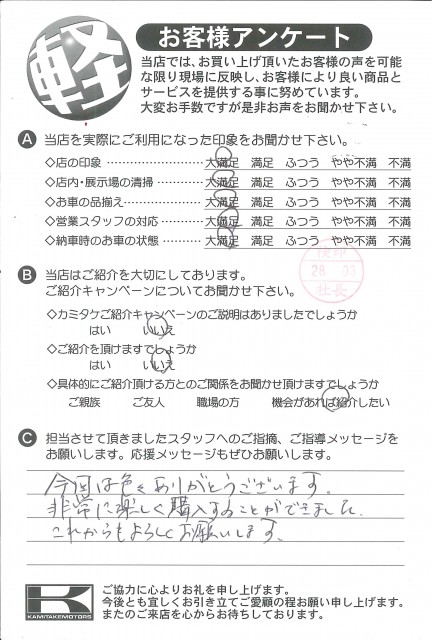 軽
お客様アンケート
当店では、お買い上げ頂いたお客様の声を可能
な限り現場に反映し、お客様により良い商品と
サービスを提供する事に努めています。
大変お手数ですが是非お声をお聞かせ下さい。
A 当店を実際にご利用になった印象をお聞かせ下さい。
◇店の印象 …………………… 大満足 満足 ふつう やや不満 不満
◇店内・展示場の清掃………… 大満足 満足 ふつう やや不満 不満
◇お車の品揃え………………… 大満足 満足 ふつう やや不満 不満
◇営業スタッフの対応………… 大満足 満足 ふつう やや不満 不満
◇納車時のお車の状態………… 大満足 満足 ふつう やや不満 不満
検印
28 03
社長
B 当店はご紹介を大切にしてあります。
ご紹介キャンペーンについてお聞かせ下さい。
◇カミタケご紹介キャンペーンのご説明はありましたでしょうか
はい いいえ
◇ご紹介を頂けますでしょうか
はい いいえ
◇具体的にご紹介頂ける方とのご関係をお聞かせ頂けますでしょうか
ご親族 ご友人 職場の方 機会があれば紹介したい
C 担当させて頂きましたスタッフへのご指摘、ご指導メッセージを
お願いします。応援メッセージもぜひお願いします。
今回は色々ありがとうございます。
非常に楽しく購入することができました。
これからもよろしくお願いします。
K
KAMITAKEMOTORS
ご協力に心よりお礼を申し上げます。
今後とも宜しくお引き立てご愛顧の程お願い申し上げます。
またのご来店を心からお待ちしております。